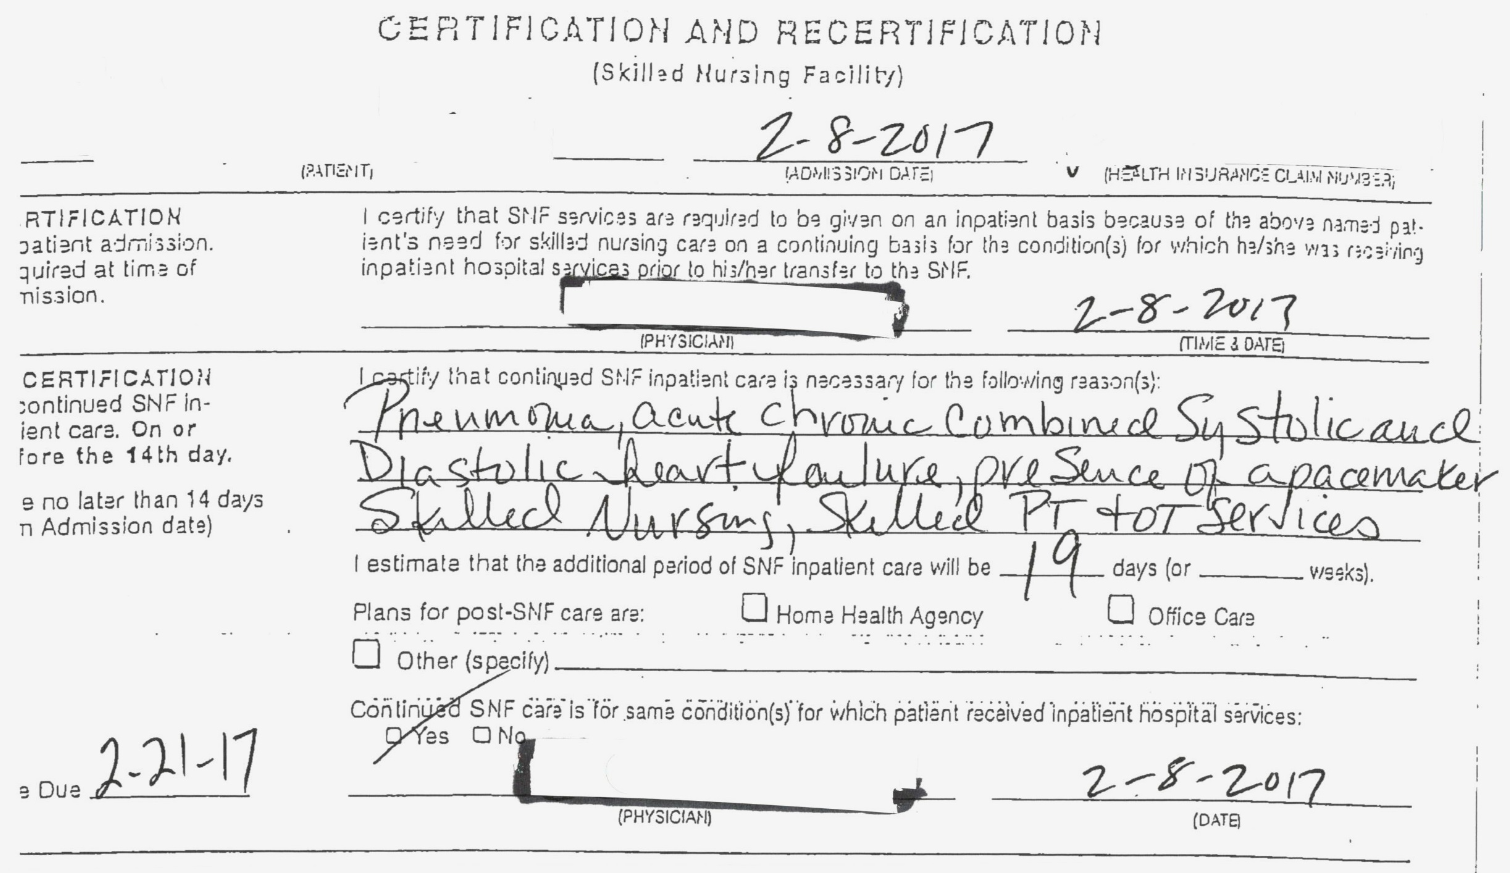 CERTIFICATION AND RECERTIFICATION
(Skilled Nursing Facility)
2-8-2017
(PATIENT) (ADMISSION DATE) (HEALTH INSURANCE CLAIM NUMBER)
RTIFICATION
patient admission.
quired at time of
mission.
I certify that SNF services are required to be given on an inpatient basis because of the above named pat-
ient's need for skilled nursing care on a continuing basis for the condition(s) for which he/she was receiving
inpatient hospital services prior to his/her transfer to the SNF.
2-8-2017
(PHYSICIAN) (TIME & DATE)
CERTIFICATION
continued SNF in-
ient care. On or
fore the 14th day.
e no later than 14 days
n Admission date)
I certify that continued SNF inpatient care is necessary for the following reason(s):
Pneumonia, acute chronic combined Systolic and
Diastolic heart failure, presence of a pacemaker
Skilled Nursing, Skilled PT + OT Services
I estimate that the additional period of SNF inpatient care will be 19 days (or weeks).
Plans for post-SNF care are: Home Health Agency Office Care
Other (specify)
Continued SNF care is for same condition(s) for which patient received inpatient hospital services:
Yes No
e Due 2-21-17
2-8-2017
(PHYSICIAN) (DATE)